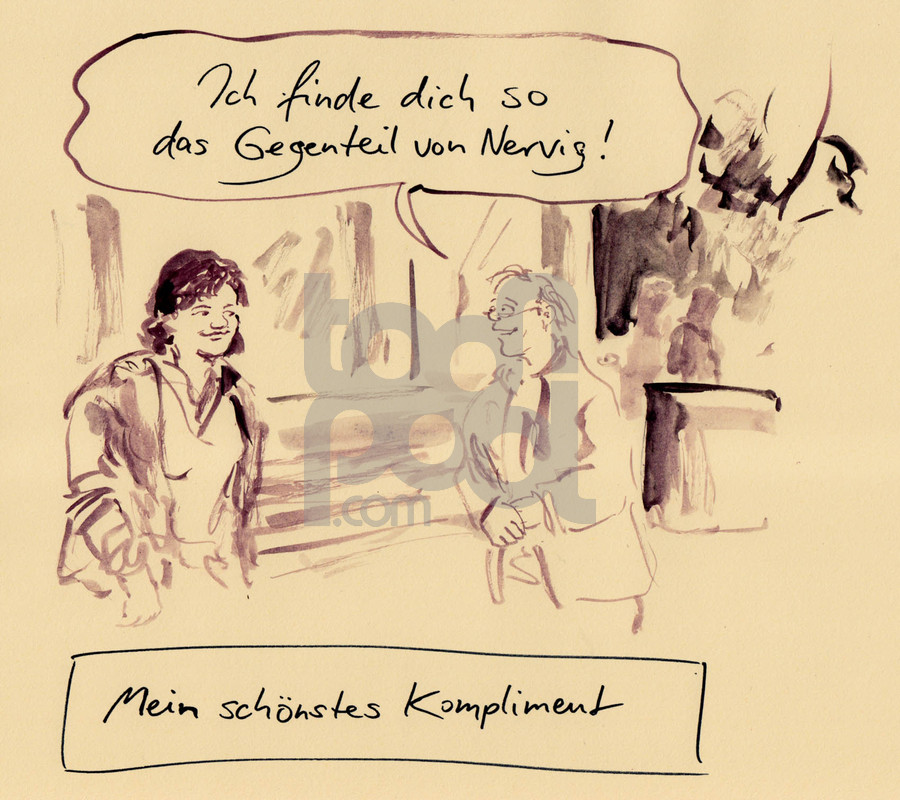 Ich finde dich so
das Gegenteil von Nervig!
toon
pool
.com
Mein schönstes Kompliment